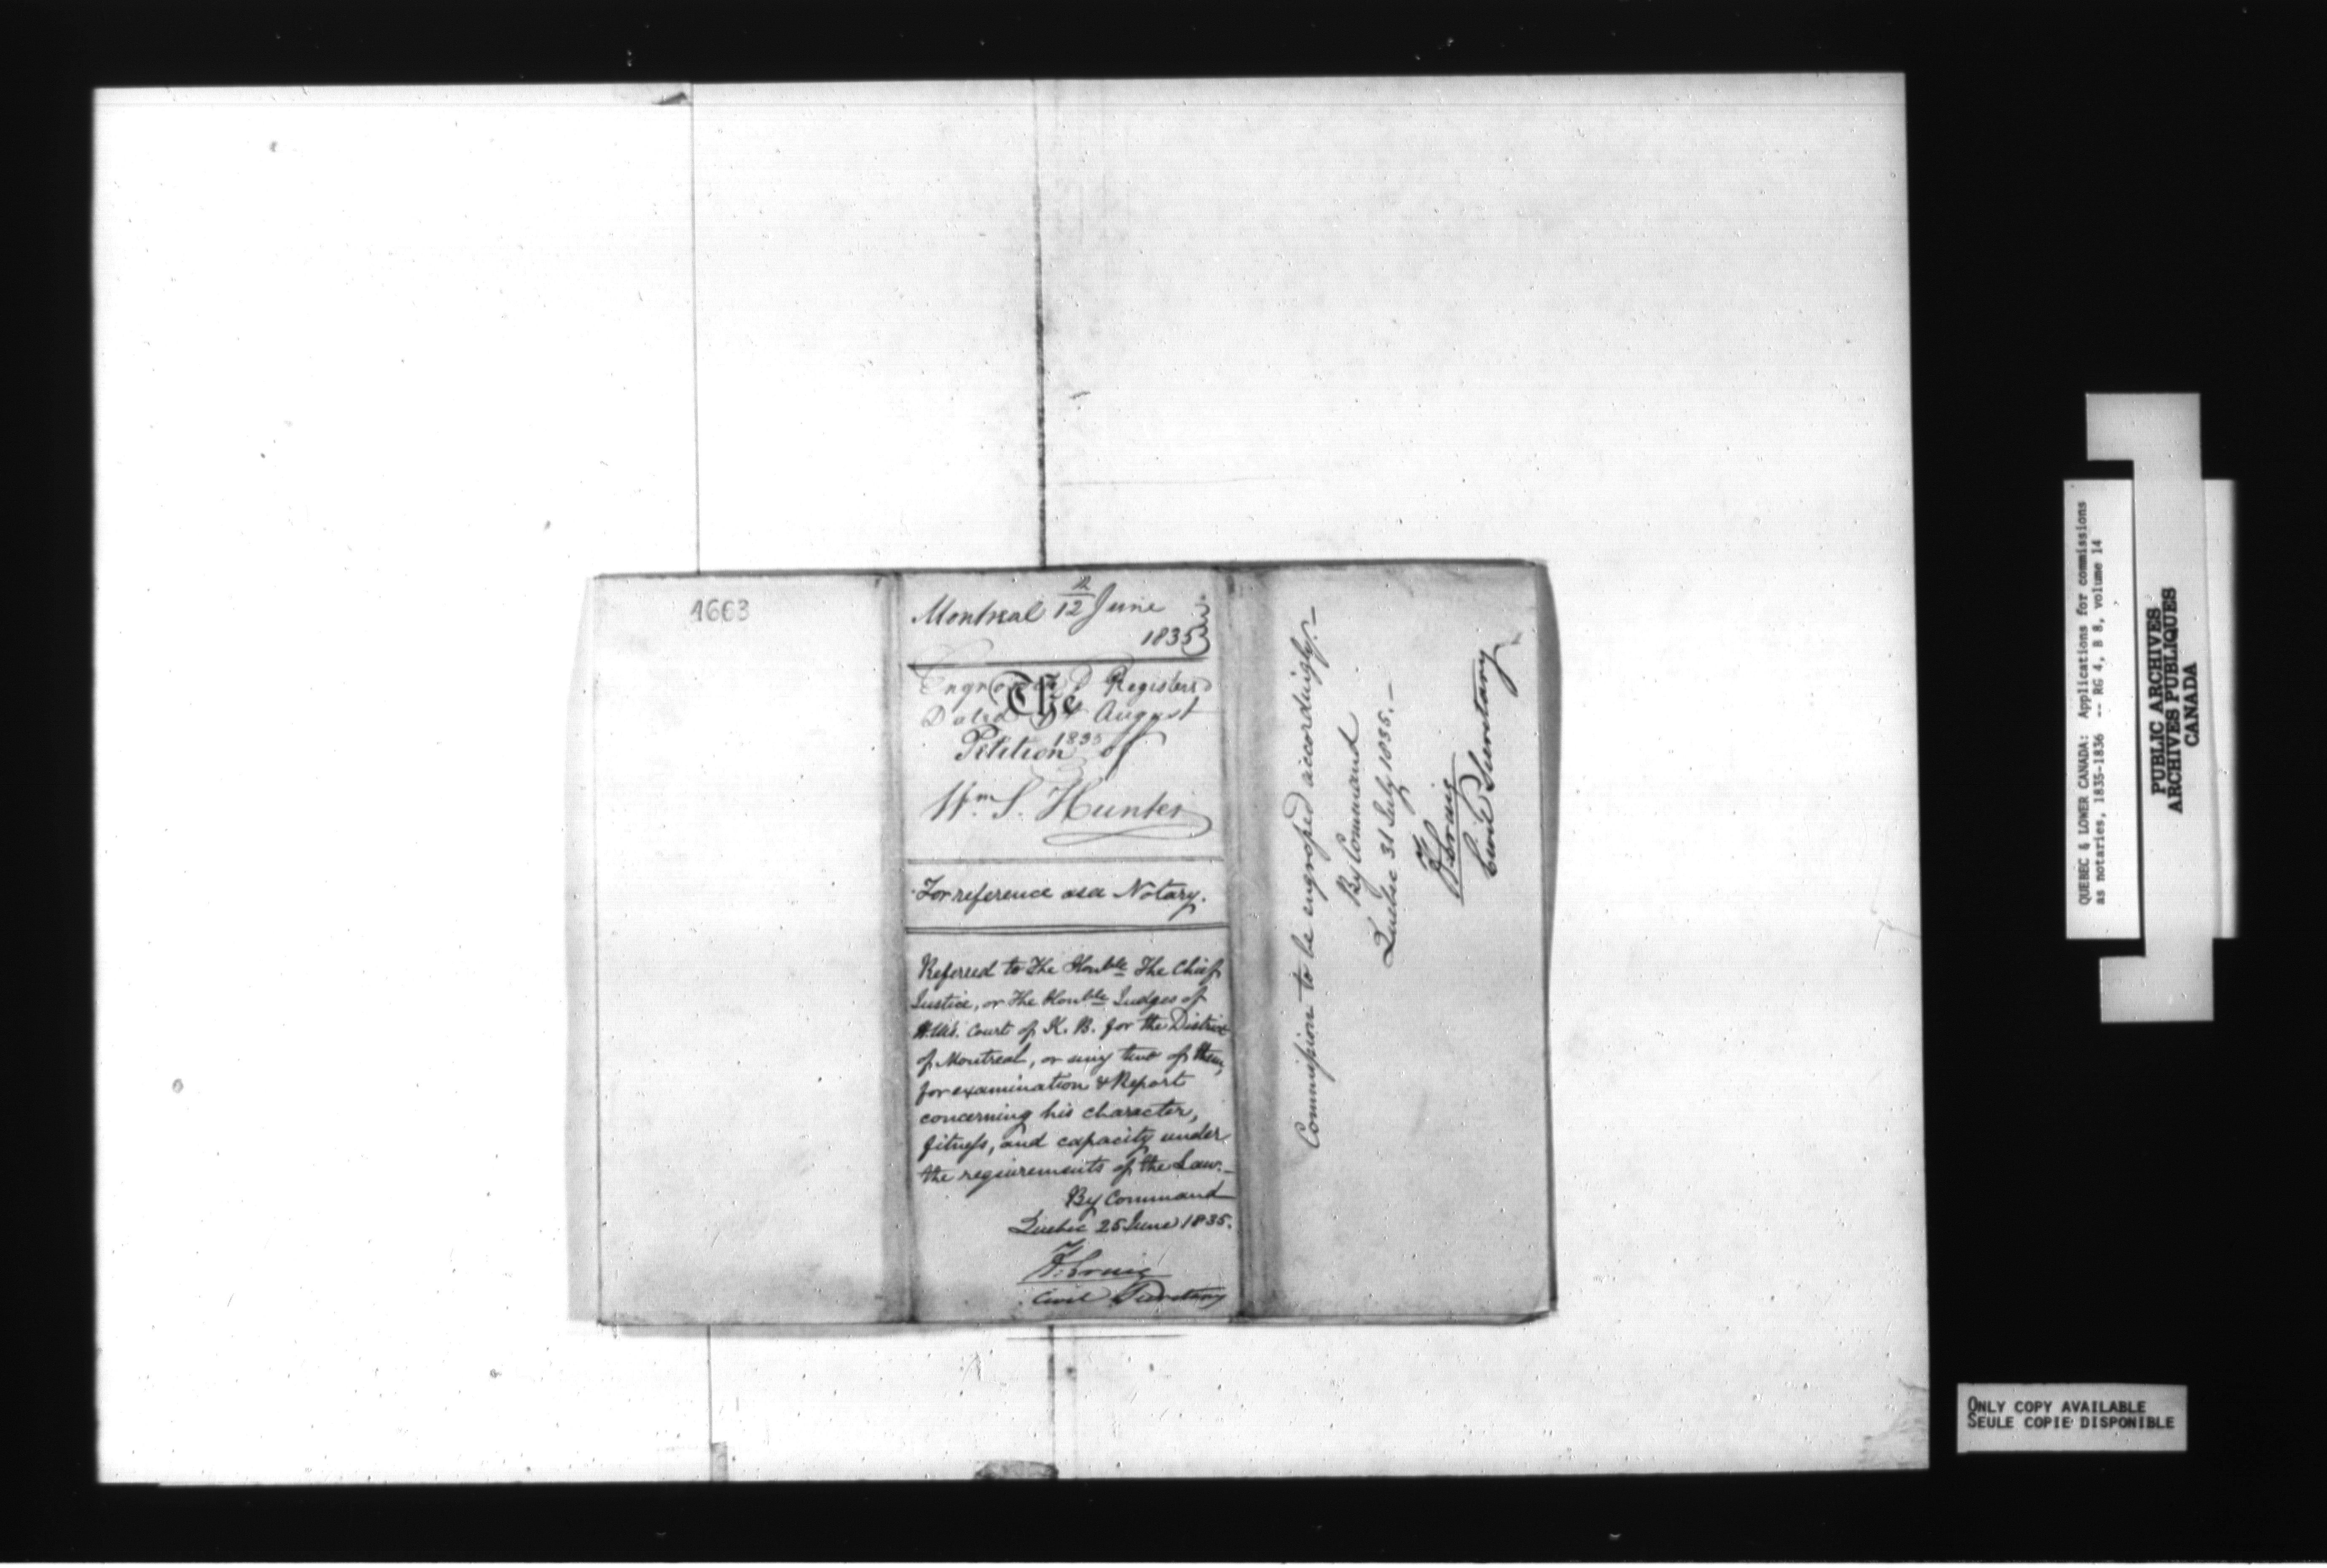 4663
Montreal 12 June
1835
Engrossed & Registered
Dated August
1835
The
Petition of
Wm S. Hunter
For reference as a Notary.
Referred to The Honble The Chief
Justice, or The Honble Judges of
H. Ms. Court of K. B. for the District
of Montreal, or any two of them,
for examination & Report
concerning his character,
fitness, and capacity under
the requirements of the Law.—
By Command
Quebec 25 June 1835.
Civil Secretary
Commission to be engrossed accordingly.—
By Command
Quebec 31 July 1835.—
Civil Secretary
QUEBEC & LOWER CANADA: Applications for commissions
as notaries, 1835-1836 -- RG 4, B 8, volume 14
PUBLIC ARCHIVES
ARCHIVES PUBLIQUES
CANADA
ONLY COPY AVAILABLE
SEULE COPIE DISPONIBLE